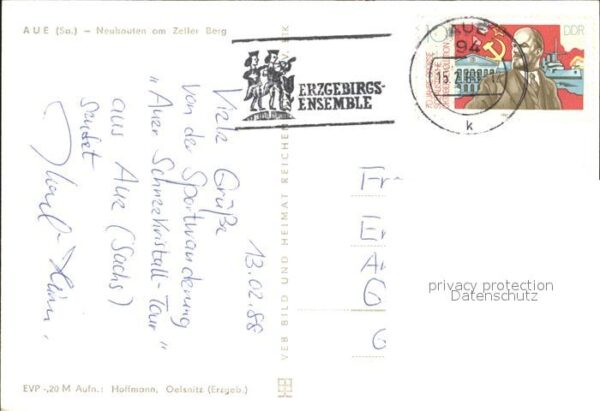 AUE (Sa.) – Neubauten am Zeller Berg
13.02.88
Viele Grüße
von der Sportwanderung
"Auer Schneekristall-Tour"
aus Aue (Sachs)
sendet
VEB BILD UND HEIMAT REICHEN
ERZGEBIRGS-
ENSEMBLE
AUE
94
15.2.88
k
10
DDR
Fr
Er
A
G
G
privacy protection
Datenschutz
EVP -,20 M Aufn.: Hoffmann, Oelsnitz (Erzgeb.)